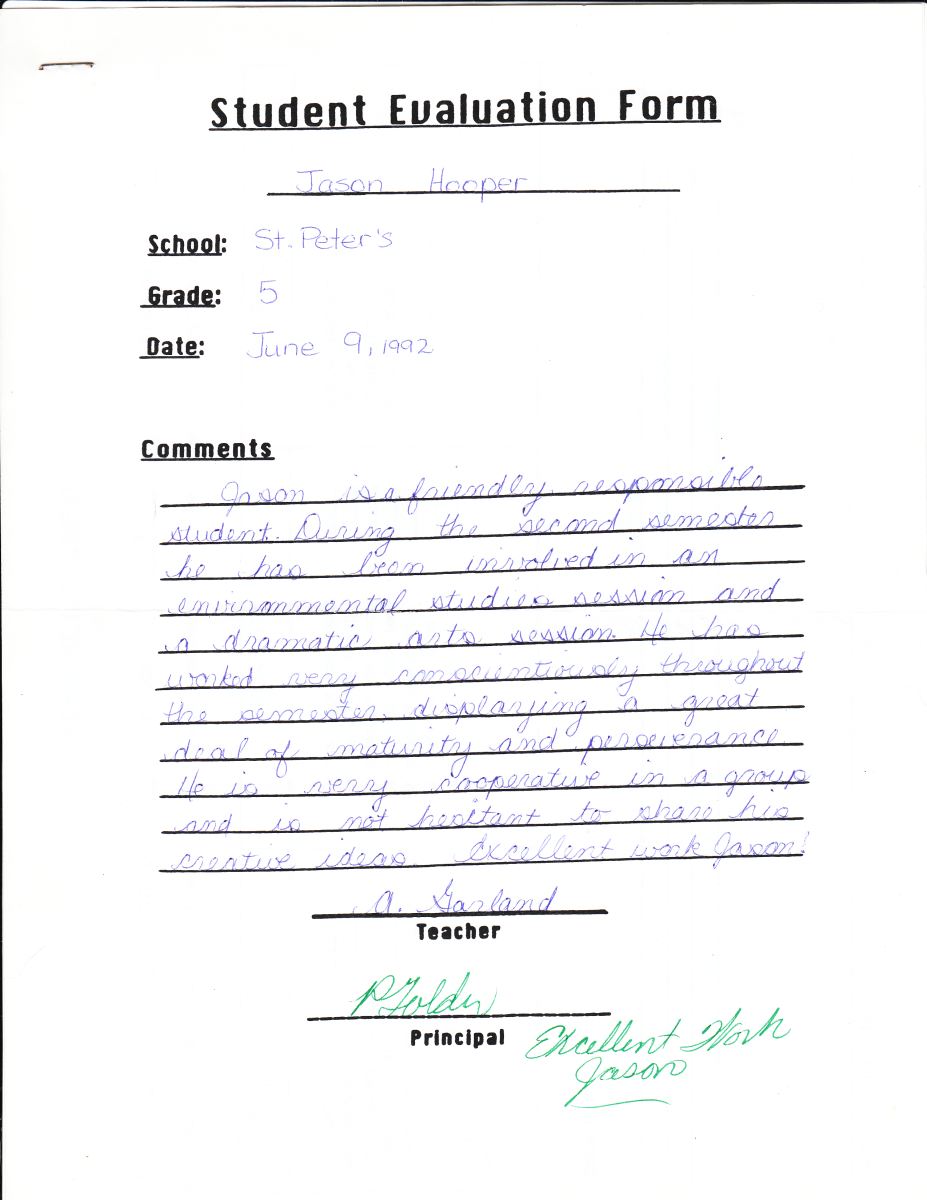 Student Evaluation Form
Jason Hooper
School: St. Peter's
Grade: 5
Date: June 9, 1992
Comments
Jason is a friendly responsible
student. During the second semester
he has been involved in an
environmental studies session and
a dramatic arts session. He has
worked very conscientiously throughout
the semester, displaying a great
deal of maturity and perseverance.
He is very cooperative in a group
and is not hesitant to share his
creative ideas. Excellent work Jason!
A. Garland
Teacher
Principal
Excellent Work
Jason